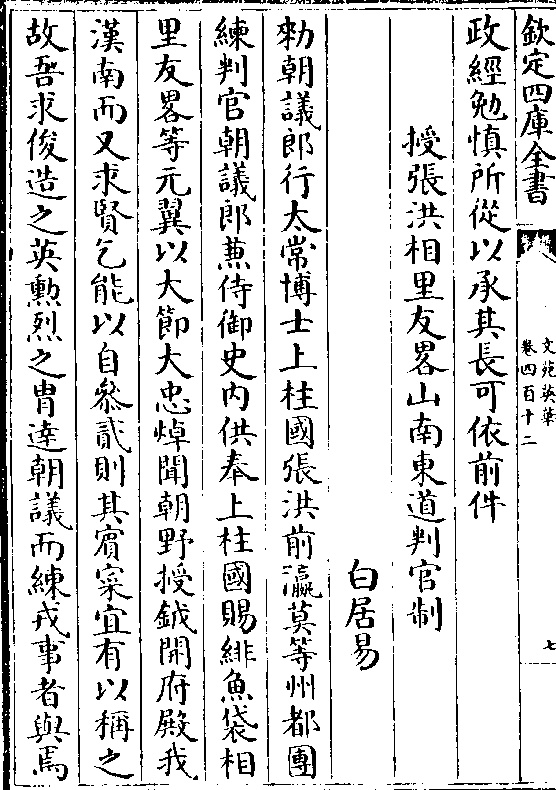 欽定四庫全書
文苑英華
卷四百十二
七
政經勉慎所從以承其長可依前件
授張洪相里友畧山南東道判官制
白居易
勑朝議郎行太常博士上柱國張洪前瀛莫等州都團
練判官朝議郎兼侍御史内供奉上柱國賜緋魚袋相
里友畧等元翼以大節大忠焯聞朝野授鉞開府殿我
漢南而又求賢乞能以自叅貳則其賔寀宜有以稱之
故吾求俊造之英勲烈之胄達朝議而練戎事者與焉